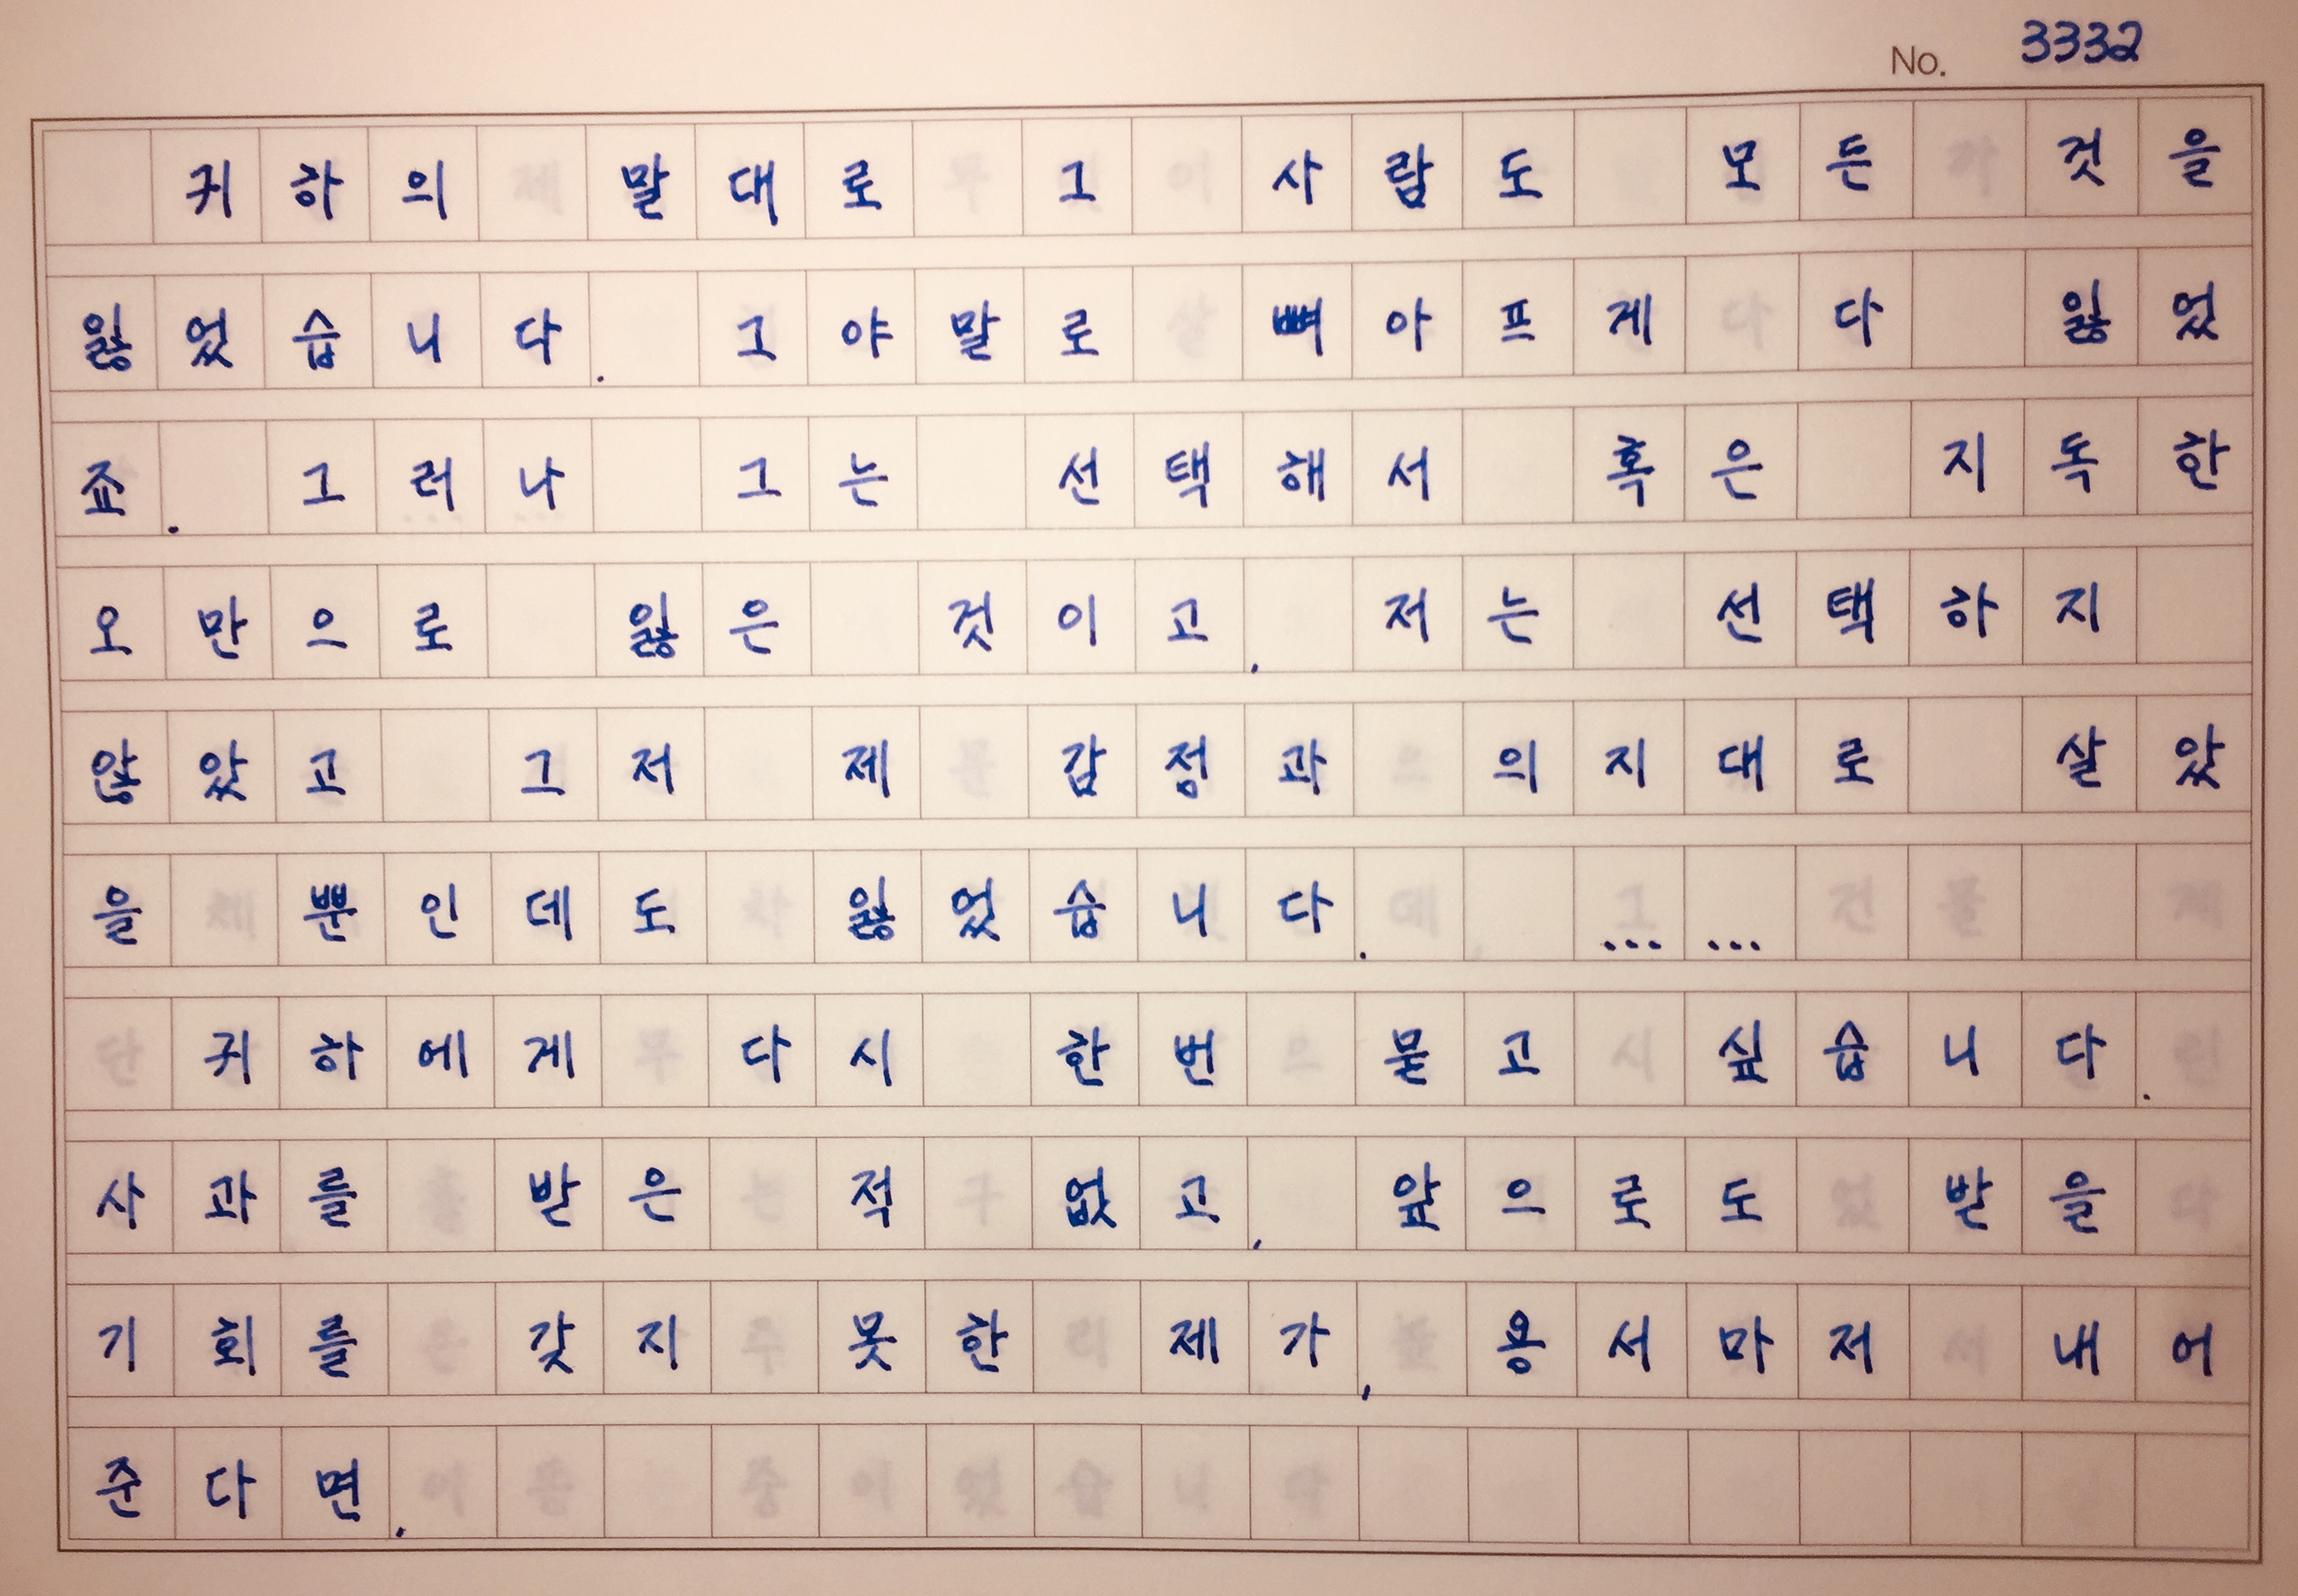 No. 3332
귀하의 말대로 그 사람도 모든 것을
잃었습니다. 그야말로 뼈아프게 다 잃었
죠. 그러나 그는 선택해서 혹은 지독한
오만으로 잃은 것이고, 저는 선택하지
않았고 그저 제 감정과 의지대로 살았
을 뿐인데도 잃었습니다. ……
귀하에게 다시 한번 묻고 싶습니다.
사과를 받은 적 없고, 앞으로도 받을
기회를 갖지 못한 제가, 용서마저 내어
준다면,